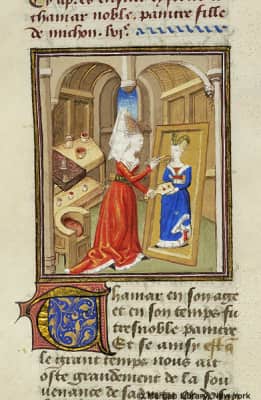 Cy apres ensuit
thamar noble paintre fille
de michon. lvi.e
hamar en son age
et en son temps fu
tres noble paintre
Et se ainsi est q̃
le grant temps nous ait
oste grandement de la sou
venance de sa
Morgan Library, New York